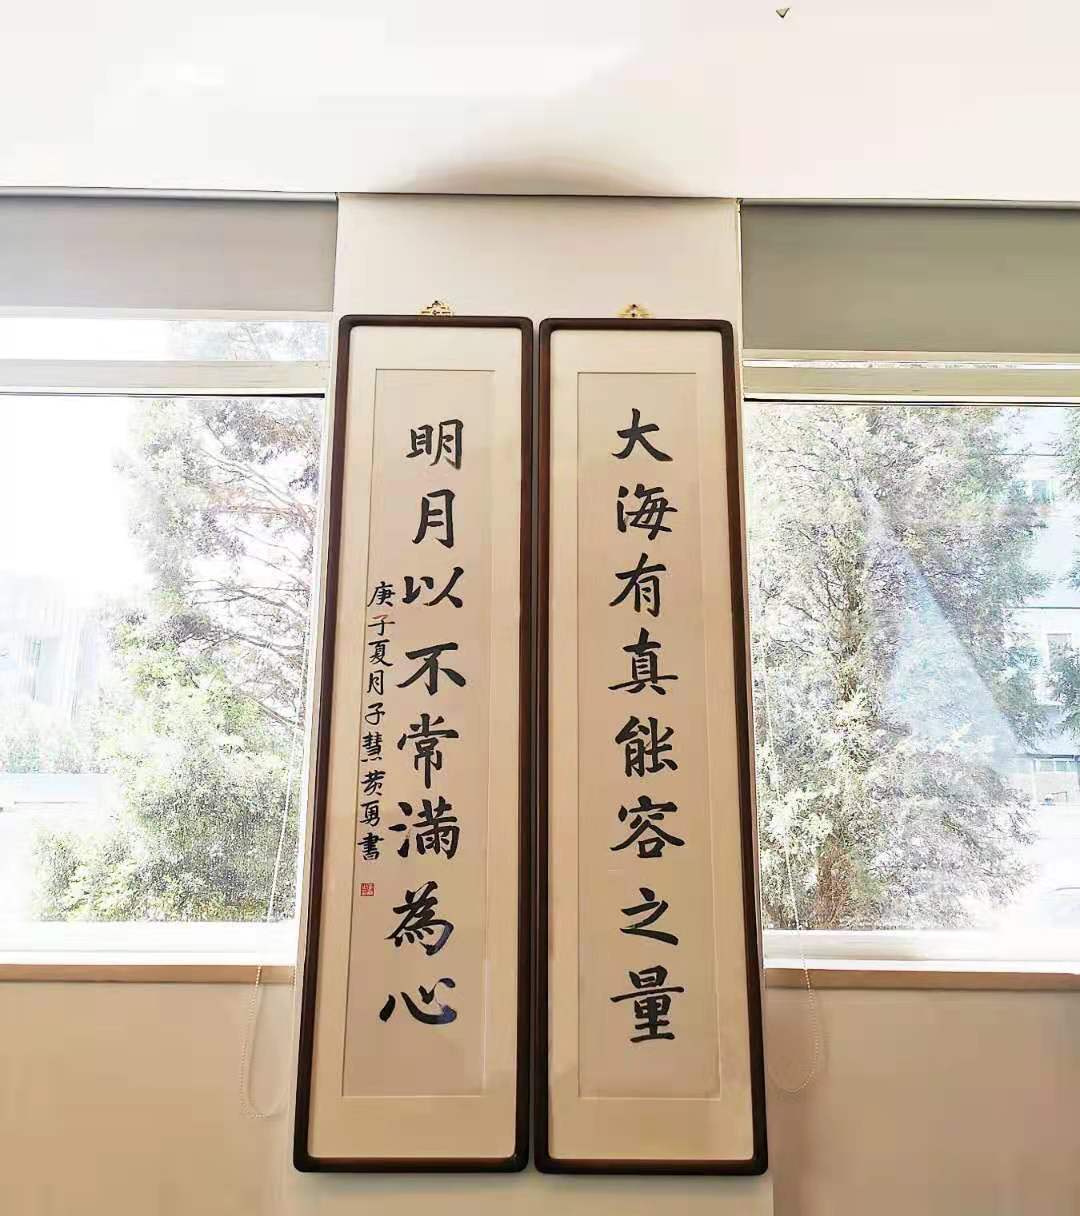 大海有真能容之量
明月以不常满為心
庚子夏月子慧黄勇書